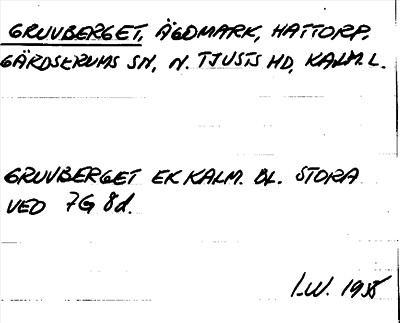 GRUVBERGET, ÄGDMARK, HATTORP,
GÄRDSERUMS SN, N. TJUSTS HD, KALM. L.
GRUVBERGET EK KALM. BL. STORA
VED 7G 8d.
I.W. 1958